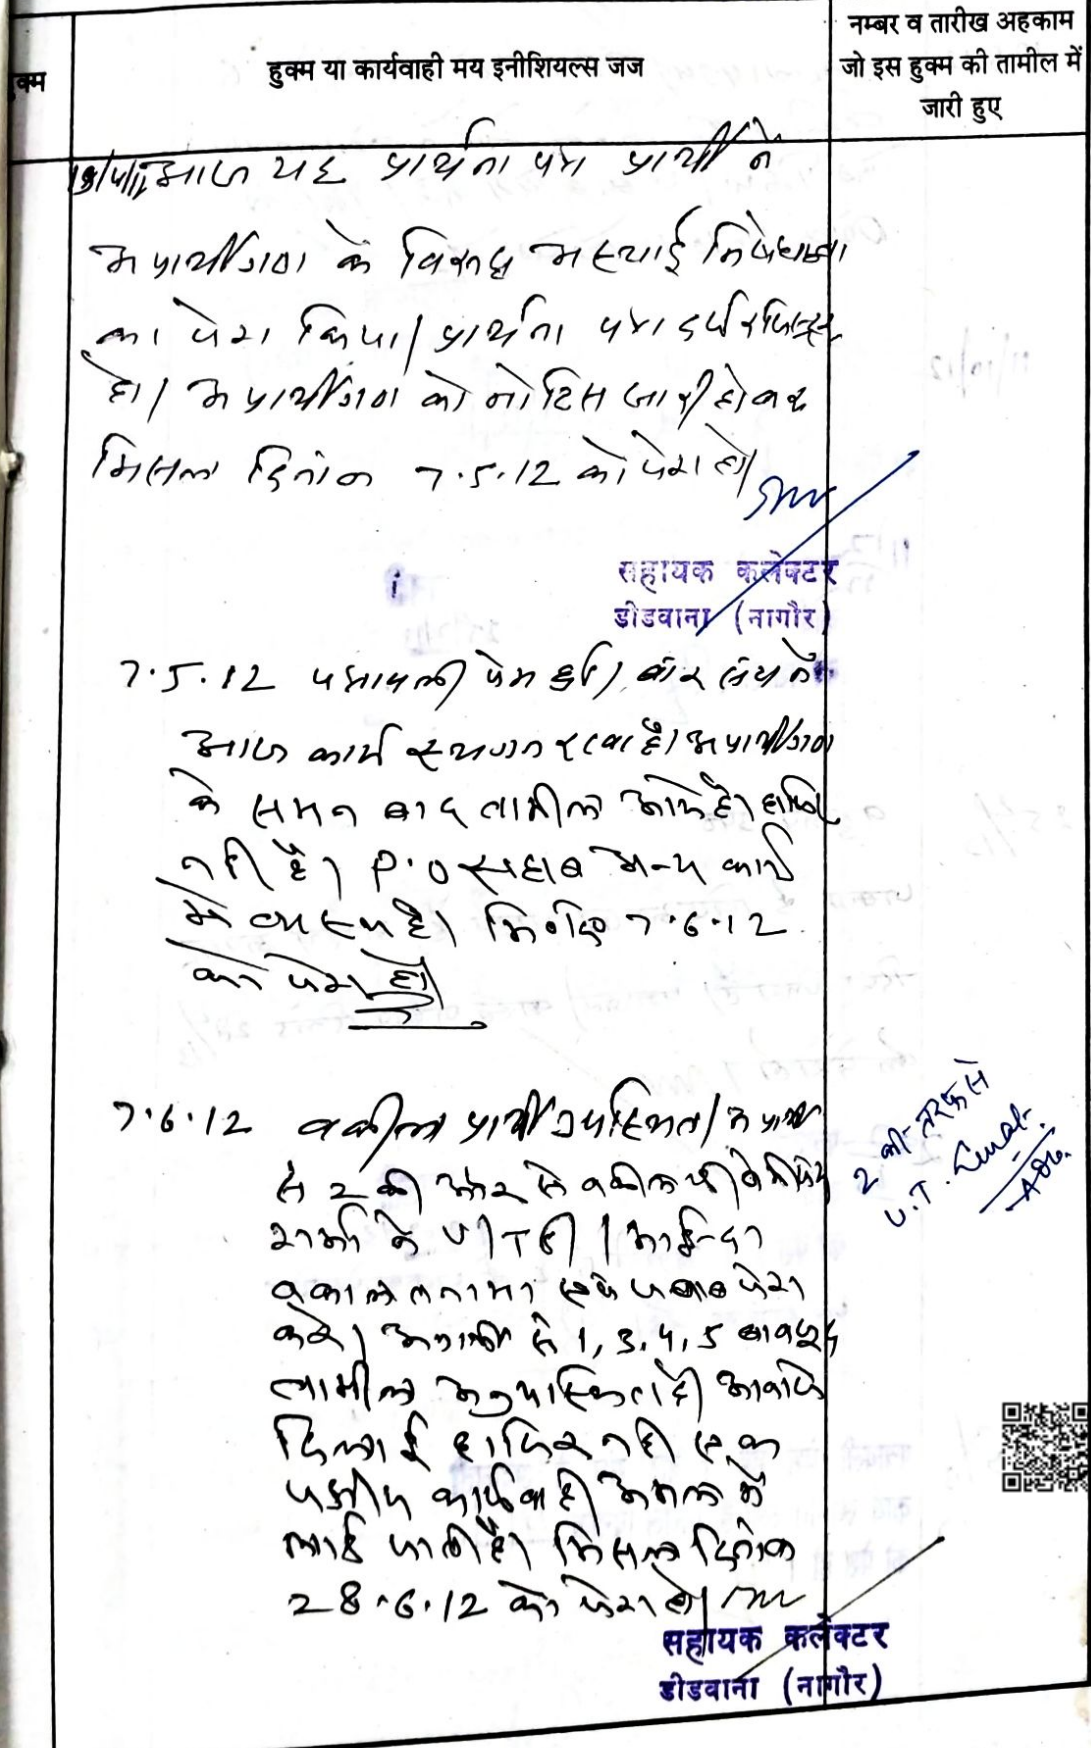 क्म
हुक्म या कार्यवाही मय इनीशियल्स जज
नम्बर व तारीख अहकाम
जो इस हुक्म की तामील में
जारी हुए
आज यह प्रार्थना पत्र प्रार्थी ने
अप्रार्थीगण के विरुद्ध अस्थाई निषेधाज्ञा
का पेश किया। प्रार्थना पत्र दर्ज रजिस्टर
हो। अप्रार्थीगण को नोटिस जारी होकर
मिसल दिनांक 7.5.12 को पेश हो।
सहायक कलेक्टर
डीडवाना (नागौर)
7.5.12 पत्रावली पेश हुई। बार संघ ने
आज कार्य स्थगन रखा है। अप्रार्थीगण
के समन बाद तामील आये है। हाजिर
नही है। P.O साहब अन्य कार्य
मे व्यस्त है। मि० दि० 7.6.12
को पेश हो।
7.6.12 वकील प्रार्थी उपस्थित।
सं 2 की ओर से वकील श्री
शर्मा ने U/T दी। आईन्दा
वकालतनामा एवं जवाब पेश
करे। अप्रार्थी सं 1, 3, 4, 5 बावजूद
तामील अनुपस्थित है। आवाज
दिलाई हाजिर नही एक
पक्षीय कार्यवाही अमल मे
लाई जाती है। मिसल दिनांक
28.6.12 को पेश हो।
सहायक कलेक्टर
डीडवाना (नागौर)
2 की तरफ से
U.T.
Adv.